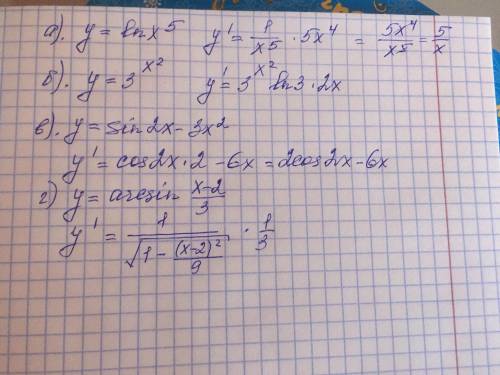 а). y = ln x⁵ y' = 1/x⁵ · 5x⁴ = 5x⁴/x⁵ = 5/x
б). y = 3^x² y' = 3^x² ln3 · 2x
в). y = sin2x - 3x²
y' = cos2x · 2 - 6x = 2cos2x - 6x
г) y = arcsin (x-2)/3
y' = 1/√(1 - (x-2)²/9) · 1/3